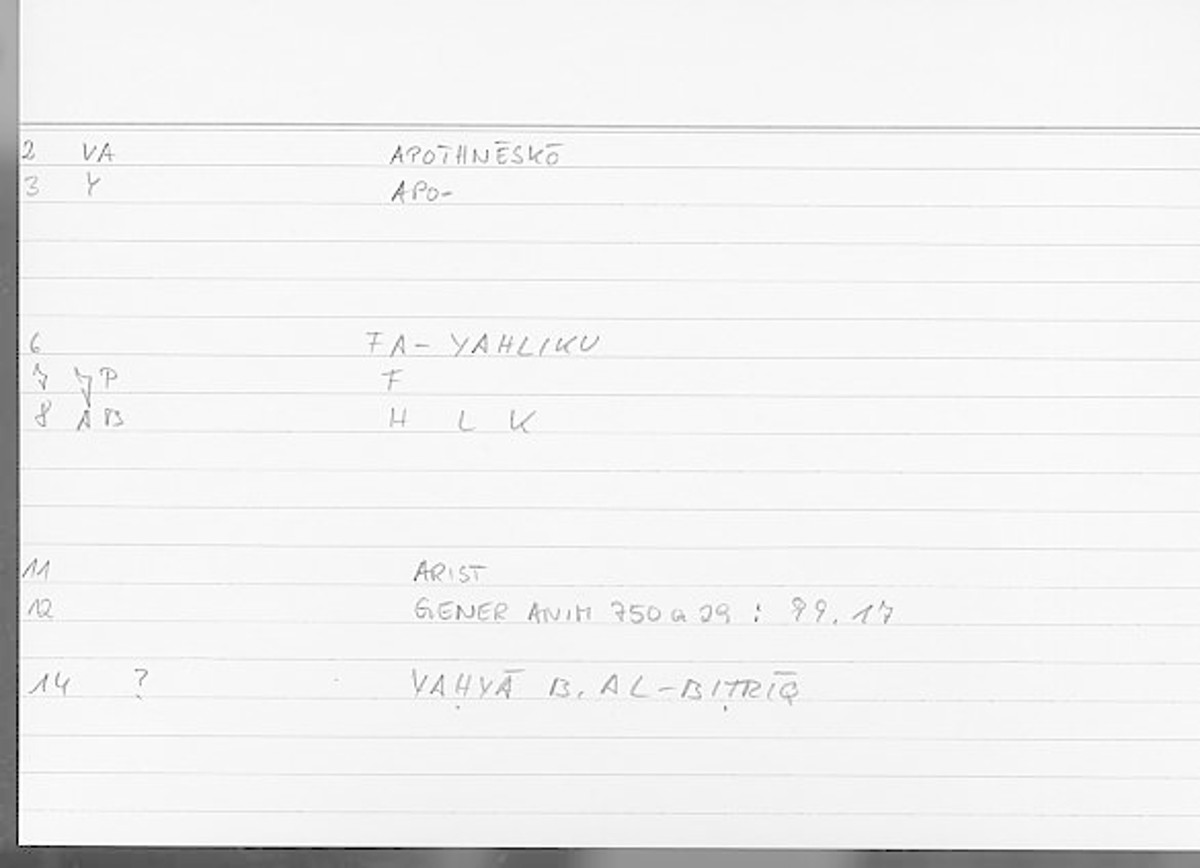 2 VA APOTHNĒSKŌ
3 Y APO-
6 FA- YAHLIKU
7 P F
8 AB H L K
11 ARIST
12 GENER ANIM 750 a 29 : 99.17
14 ? YAḤYĀ B. AL-BIṬRĪQ